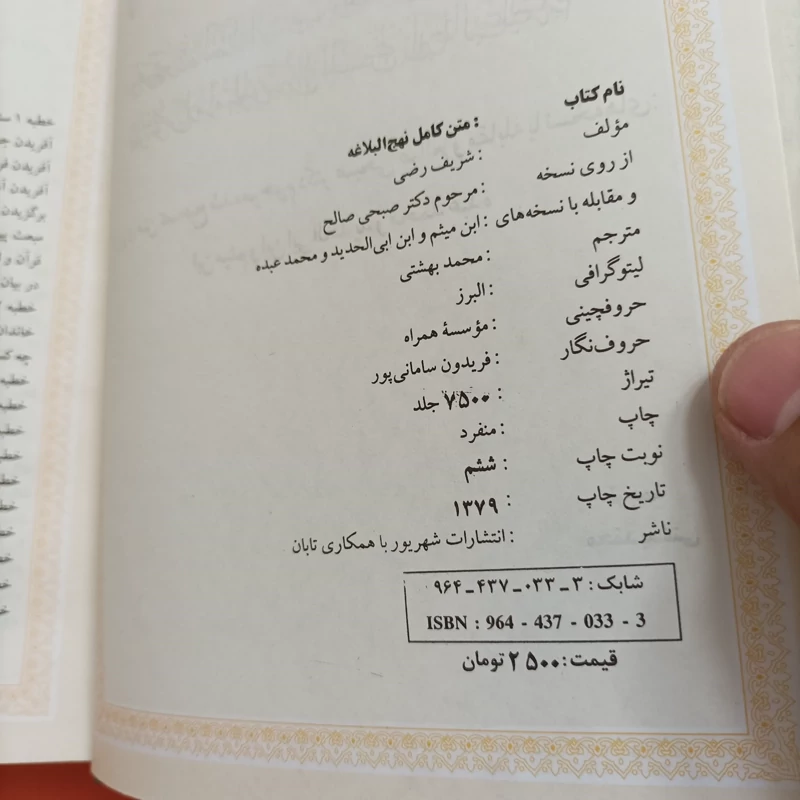 نام کتاب : متن کامل نهج‌البلاغه
مؤلف : شریف رضی
از روی نسخه : مرحوم دکتر صبحی صالح
و مقابله با نسخه‌های : ابن میثم و ابن ابی‌الحدید و محمد عبده
مترجم : محمد بهشتی
لیتوگرافی : البرز
حروفچینی : مؤسسهٔ همراه
حروف‌نگار : فریدون سامانی‌پور
تیراژ : ۷۵۰۰ جلد
چاپ : منفرد
نوبت چاپ : ششم
تاریخ چاپ : ۱۳۷۹
ناشر : انتشارات شهریور با همکاری تابان
شابک : ۳ ـ ۰۳۳ ـ ۴۳۷ ـ ۹۶۴
ISBN : 964 - 437 - 033 - 3
قیمت : ۲۵۰۰ تومان
خطبه ۱
آفریدن
آفریدن
آفریدن
برگزیدن
مبعث
قرآن و
در بیان
خطبه
خاندان
چه
خطبه
خطبه
خطبه
خطبه